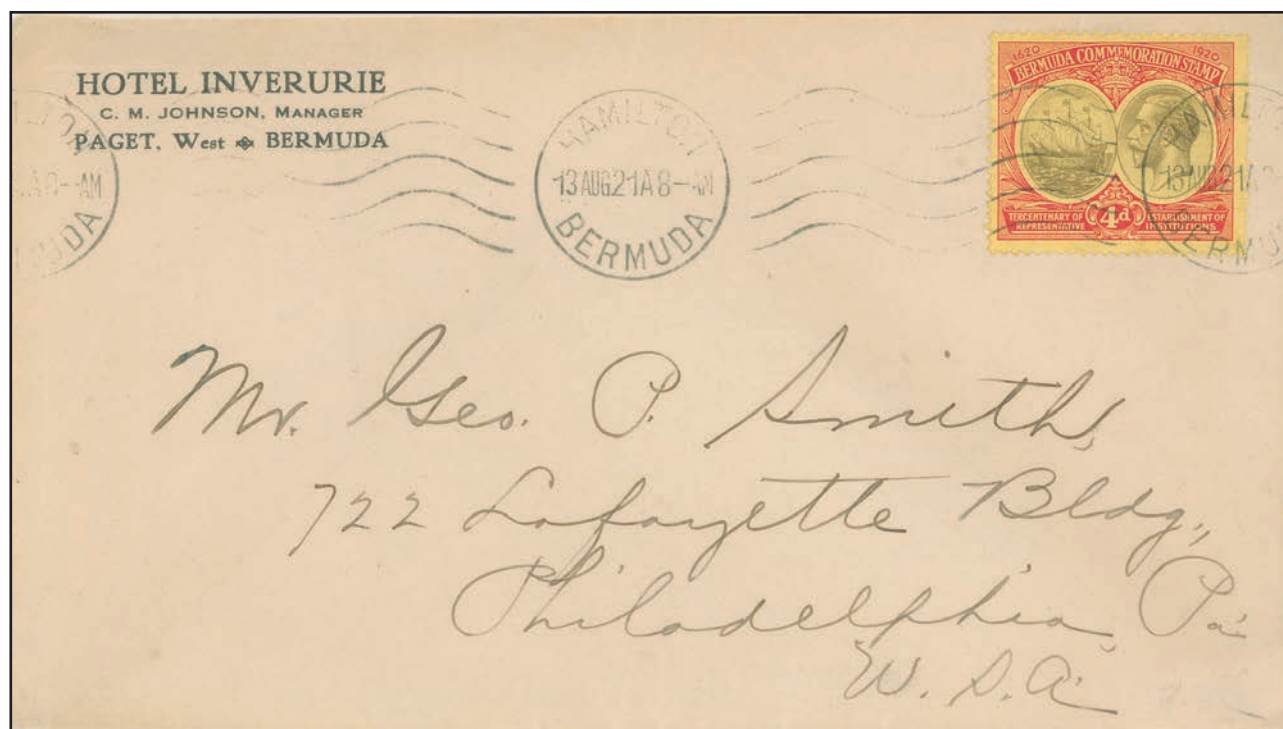 HOTEL INVERURIE
C. M. JOHNSON, MANAGER
PAGET, West BERMUDA
AM
UDA
HAMILTON
13 AUG 21 A 8 - AM
BERMUDA
1620 1920
BERMUDA COMMEMORATION STAMP
TERCENTENARY OF ESTABLISHMENT OF
REPRESENTATIVE 4d INSTITUTIONS
HAMILTO
13 AUG 21 A 8
BERMU
Mr. Geo. P. Smith,
722 Lafayette Bldg.,
Philadelphia, Pa.
U. S. A.